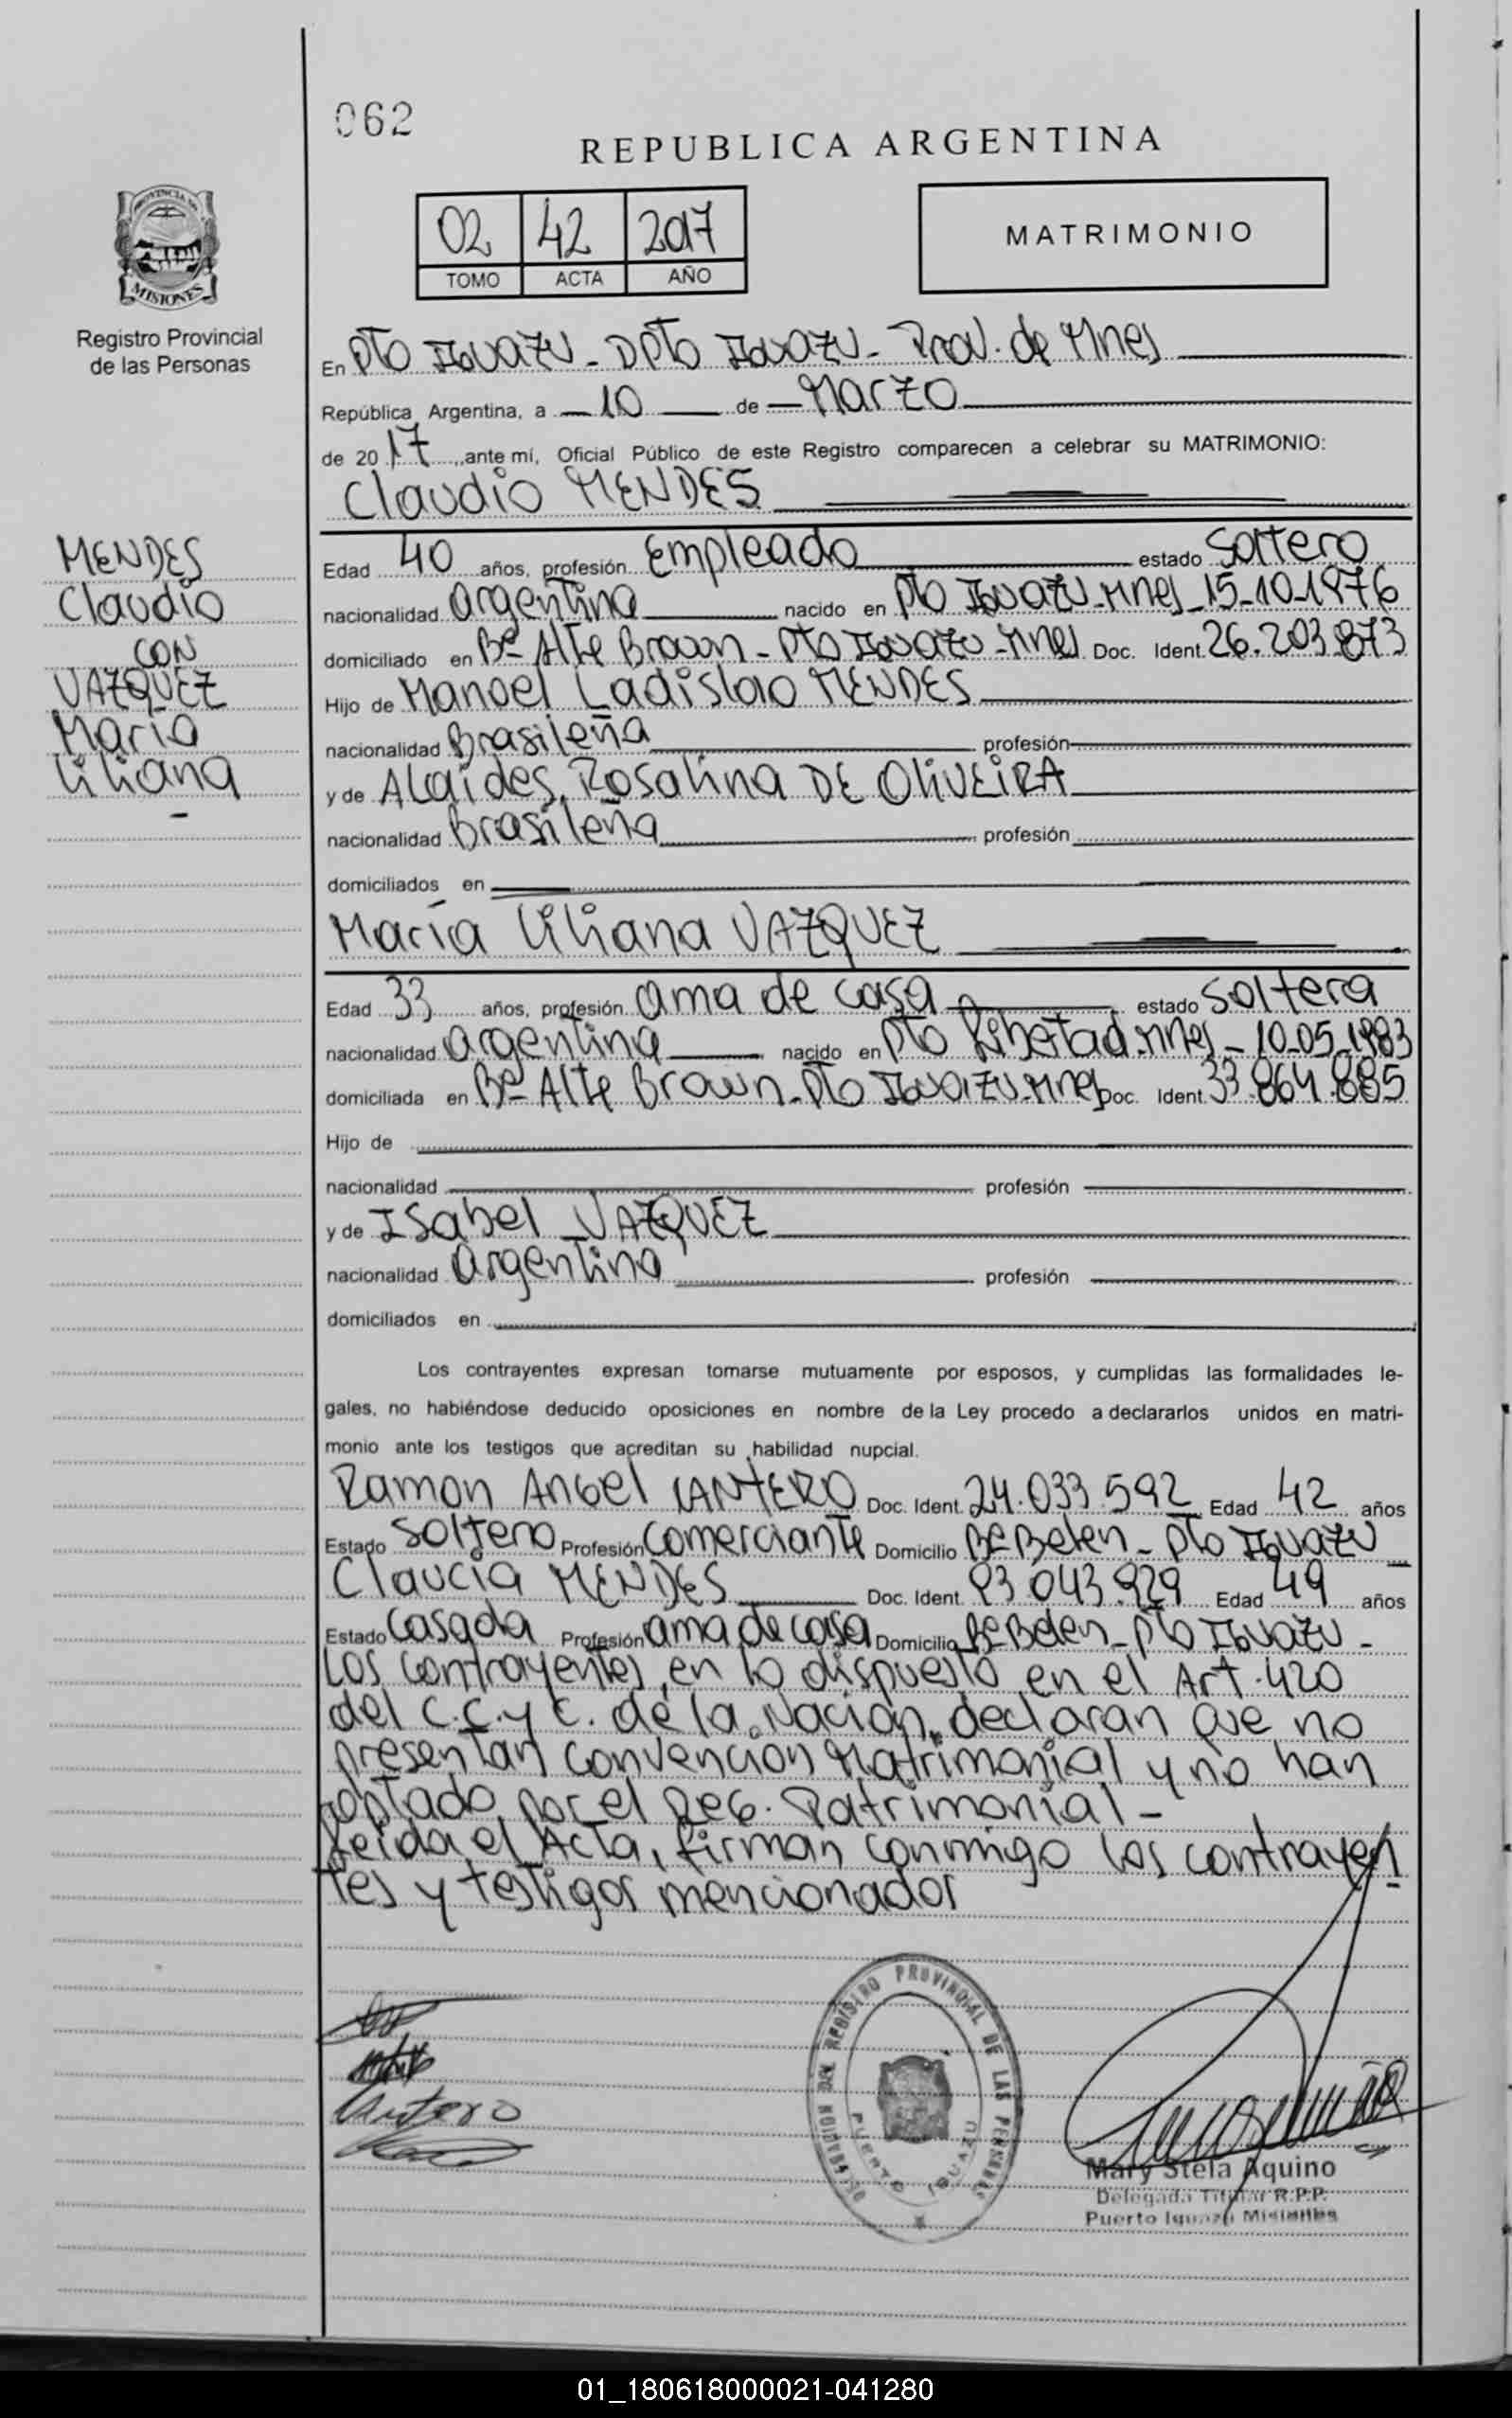 062
REPUBLICA ARGENTINA
PROVINCIA DE
MISIONES
Registro Provincial
de las Personas
02 42 2017
TOMO ACTA AÑO
MATRIMONIO
En Pto Iguazu - Dpto Iguazu - Prov. de Mnes
República Argentina, a 10 de Marzo
de 2017, ante mí, Oficial Público de este Registro comparecen a celebrar su MATRIMONIO:
Claudio MENDES
MENDES
Claudio
CON
VAZQUEZ
Maria
Liliana
-
Edad 40 años, profesión Empleado estado Soltero
nacionalidad argentina nacido en Pto Iguazu-Mnes-15-10-1976
domiciliado en Bº Alte Brown - Pto Iguazu-Mnes Doc. Ident. 26.203.873
Hijo de Manoel Ladislao MENDES
nacionalidad Brasileña profesión
y de Alaídes Rosalina DE OliVEiRA
nacionalidad Brasileña profesión
domiciliados en
María Liliana VAZQUEZ
Edad 33 años, profesión ama de casa estado Soltera
nacionalidad argentina nacido en Pto Libertad-Mnes - 10-05-1983
domiciliada en Bº Alte Brown-Pto Iguazu-Mnes Doc. Ident. 33.864.885
Hijo de
nacionalidad profesión
y de Isabel VAZQUEZ
nacionalidad argentina profesión
domiciliados en
Los contrayentes expresan tomarse mutuamente por esposos, y cumplidas las formalidades le-
gales, no habiéndose deducido oposiciones en nombre de la Ley procedo a declararlos unidos en matri-
monio ante los testigos que acreditan su habilidad nupcial.
Ramon Angel CANTERO Doc. Ident. 24.033.592 Edad 42 años
Estado Soltero Profesión Comerciante Domicilio Bº Belen - Pto Iguazu
Claucia MENDES Doc. Ident. 93.043.929 Edad 49 años
Estado Casada Profesión ama de casa Domicilio Bº Belen - Pto Iguazu -
Los contrayentes, en lo dispuesto en el Art. 420
del C.C. y C. de la Nación, declaran que no
presentan convencion Matrimonial y no han
optado por el Reg. Patrimonial -
Leida el Acta, firman conmigo los contrayen
tes y testigos mencionados
DELEGACION DEL REGISTRO PROVINCIAL DE LAS PERSONAS
PUERTO IGUAZU
Mary Stela Aquino
Delegada Titular R.P.P.
Puerto Iguazú Misiones
01_180618000021-041280